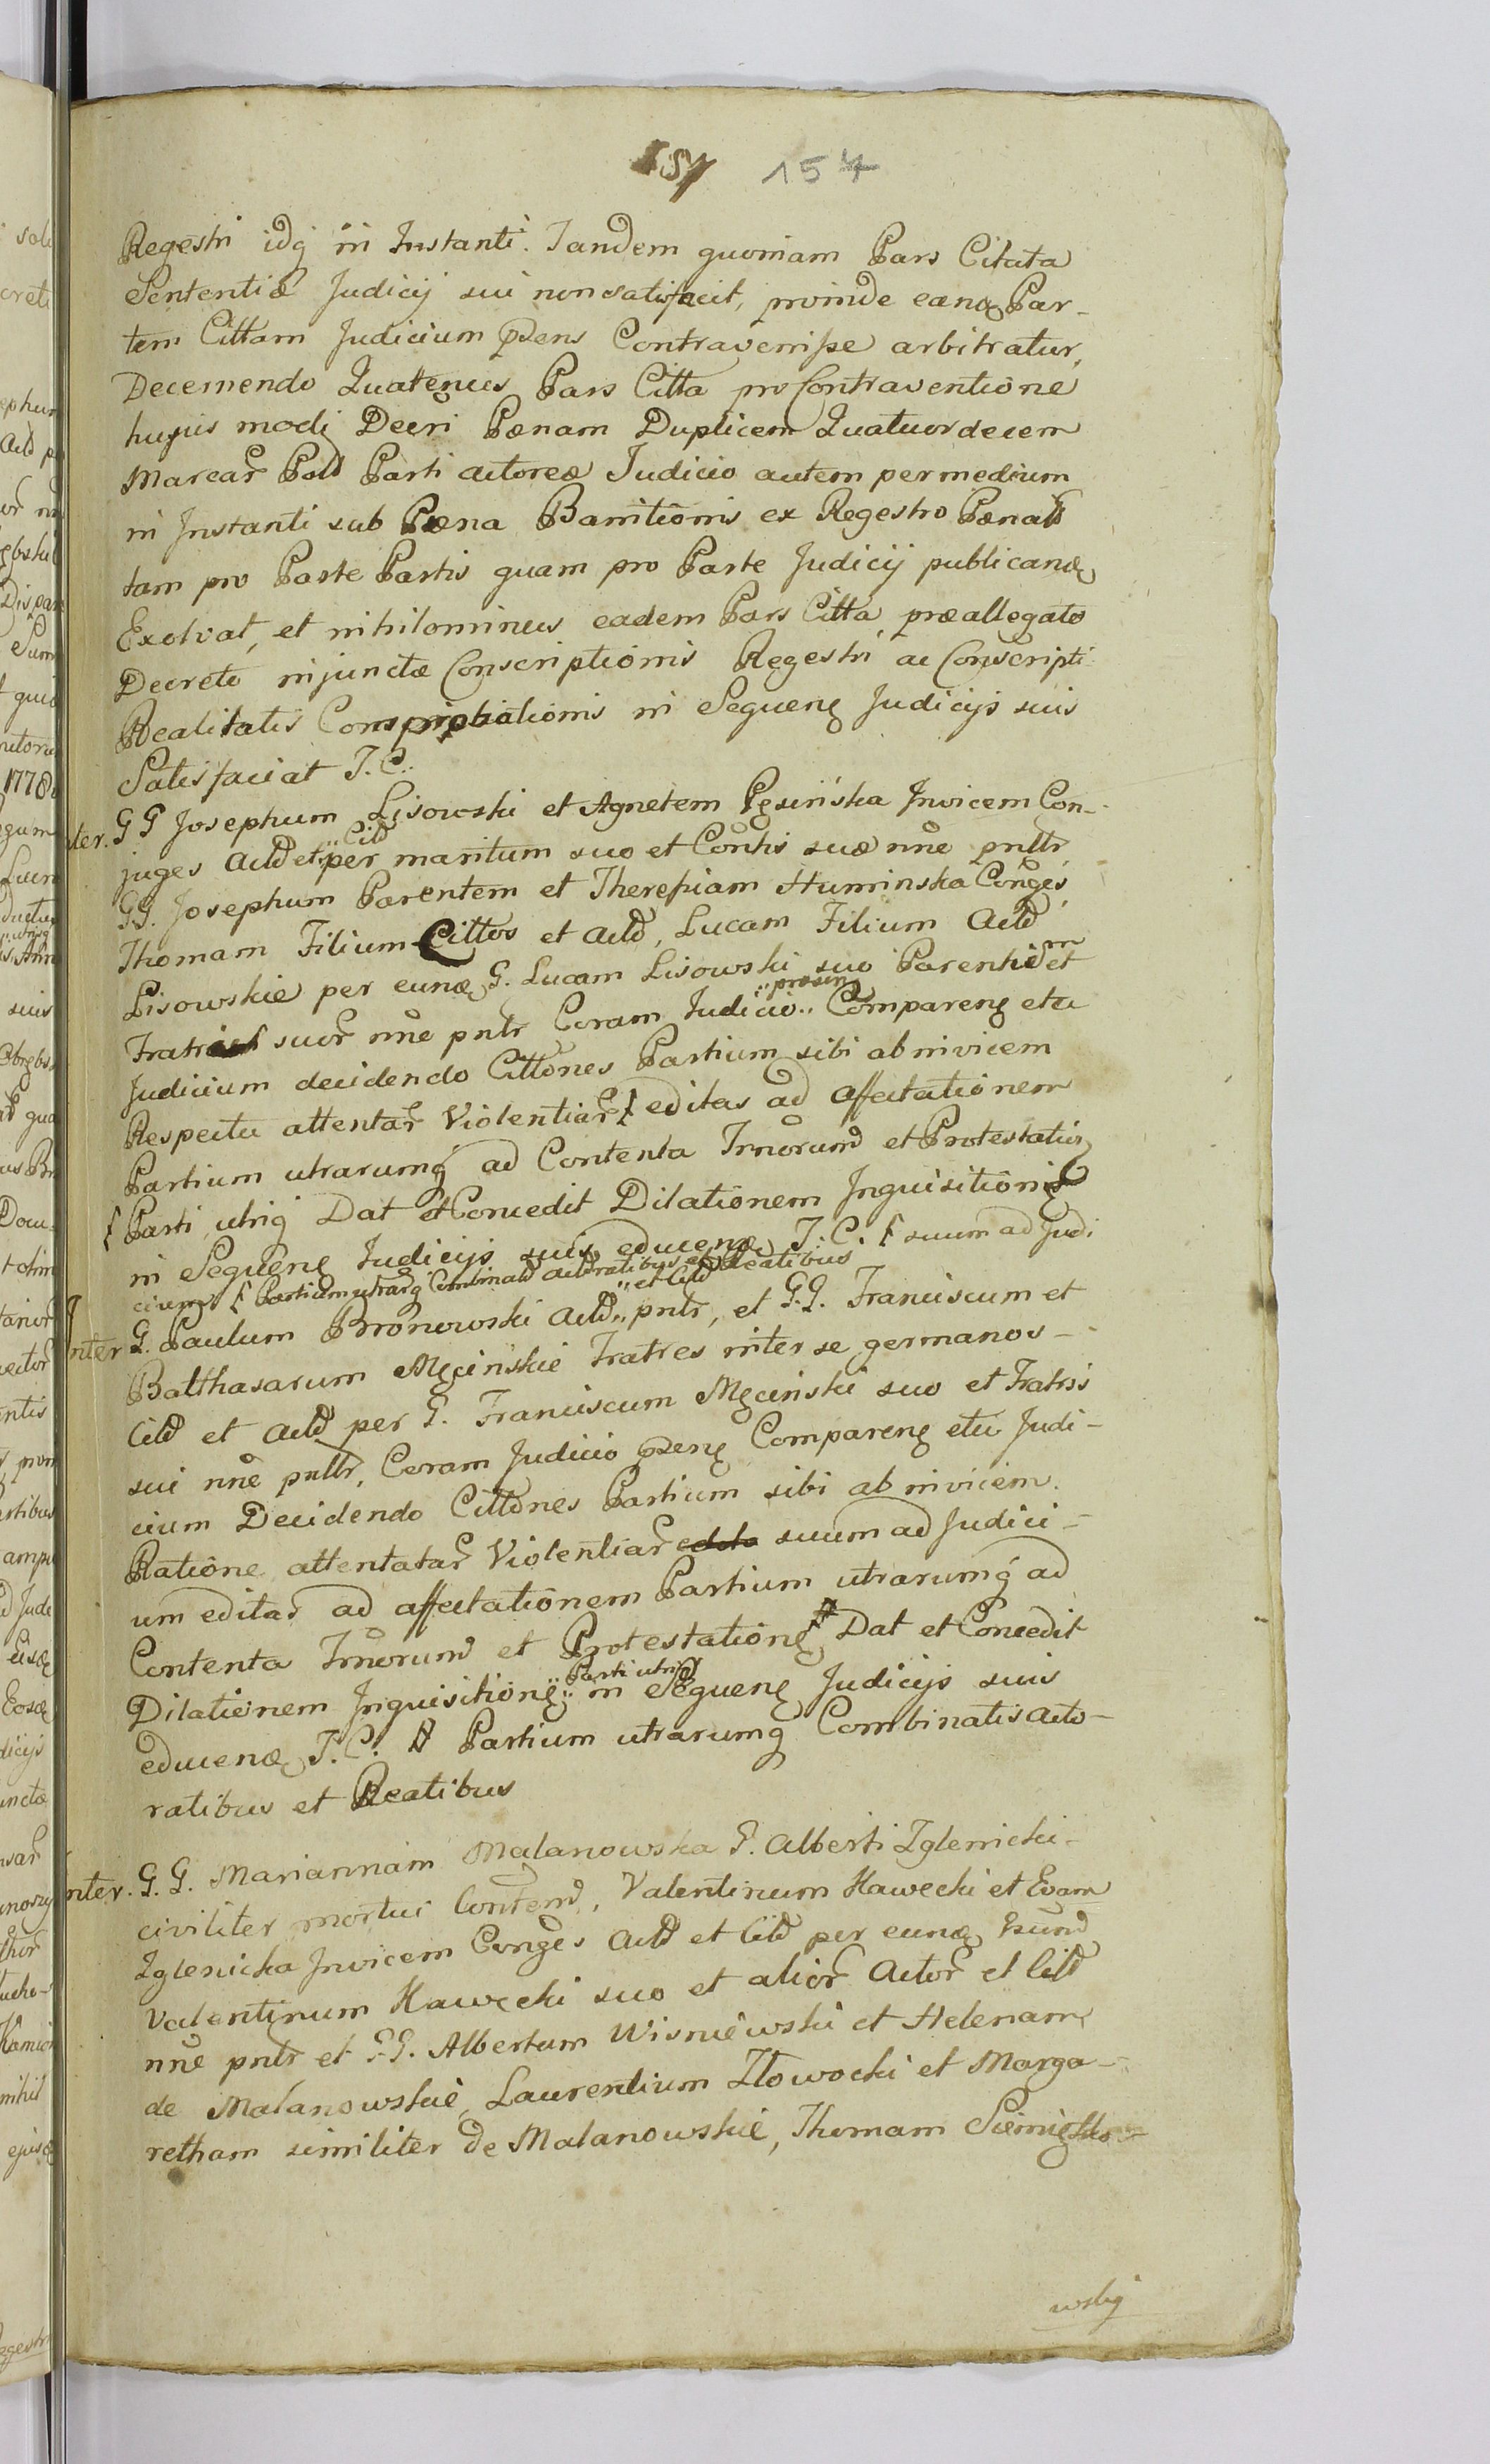 157 154
Regestri idq in Instanti. Tandem quoniam Pars Citata
Sententiæ Judicij sui non satisfacit, proinde eanq Par-
tem Cittam Judicium pdens Contravenisse arbitratur,
Decernendo Quatenus Pars Citta pro Contraventione
hujus modi Decri Pænam Duplicem Quatuordecem
Marcar Pold Parti actoreæ Judicio autem per medium
in Instanti sub Pæna Bannitionis ex Regestro Pænald
tam pro Parte Partis quam pro Parte Judicij publicandæ
Exolvat, et nihilominus eadem Pars Citta præallegato
Decreto injunctæ Conscriptionis Regestri ac Conscripti
Realitatis Satisfaciat T. C.
ter. G G Josephum Lisowski et Agnetem Pęsińska Invicem Con-
juges Actd et Citd per maritum suo et Contis suæ nne pnttr,
GG. Josephum Parentem et Theresiam Huminska Conges,
Thomam Filium Cittos et Actd, Lucam Filium Actd
Lisowskie per eunq G. Lucam Lisowski suo Parentum et
Fratris suor nne pntr Coram Judicio præsen Compareng etu
Judicium decidendo Cittones Partium sibi ab invicem
Respectu attentar Violentiar editas ad affectationem
Partium utrarumq ad Contenta Trnorumd et Protestation
Parti utriq Dat et Concedit Dilationem Inquisitionis
in Sequeng Judicijs suis educend T. C. suum ad Judi
cium Partium utrarq Combinatd actoratibus et Reatibus
Inter G. Paulum Bronowski Actd et Citd pntr, et G.G. Franciscum et
Balthasarum Męcinskie Fratres inter se germanos -
Citd et Actd per G. Franciscum Męcinski suo et Fratris
sui nne pnttr, Coram Judicio pdeng Compareng etu Judi-
cium Decidendo Cittones Partium sibi ab invicem.
Ratione attentatar Violentiar suum ad Judici-
um editas ad affectationem Partium utrarumq ad
Contenta Trnorumd et Protestationg # Dat et Concedit
Dilationem Inquisitiong Parti utriq in Sequeng Judicijs suis
educend T. C. # Partium utrarumq Combinatis acto-
ratibus et Reatibus
Inter. G. G. Mariannam Malanowska G. Alberti Zglenicki -
civiliter mortui Contemd, Valentinum Kawecki et Evam
Zglenicka Invicem Conges Actd et Citd per eunq
Valentinum Kawecki suo et alior Actor et Citd
nne pntr et G.G. Albertum Wisniewski et Helenam
de Malanowskie, Laurentium Ztowocki et Marga-
retham similiter de Malanowskie, Thomam
wskij